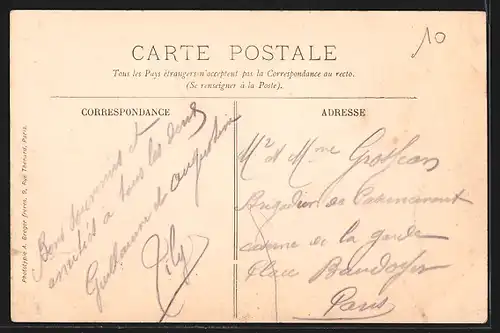 10
CARTE POSTALE
Tous les Pays étrangers n'acceptent pas la Correspondance au recto.
(Se renseigner à la Poste).
CORRESPONDANCE
ADRESSE
Bons souvenirs et
amitiés à tous les deux
Guillaume et Augustine
Mr et Mme Grosjean
Brigadier de
caserne de la garde
Place Baudoyer
Paris
Phototypie A. Breger frères, 9, Rue Thénard, Paris.